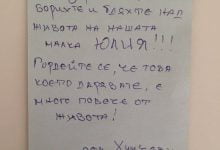 Борихте и бдяхте НАД
живота на нашата
малка ЮЛИЯ!!!
Гордейте се, че това
което дарявате, е
много повече от
живота!